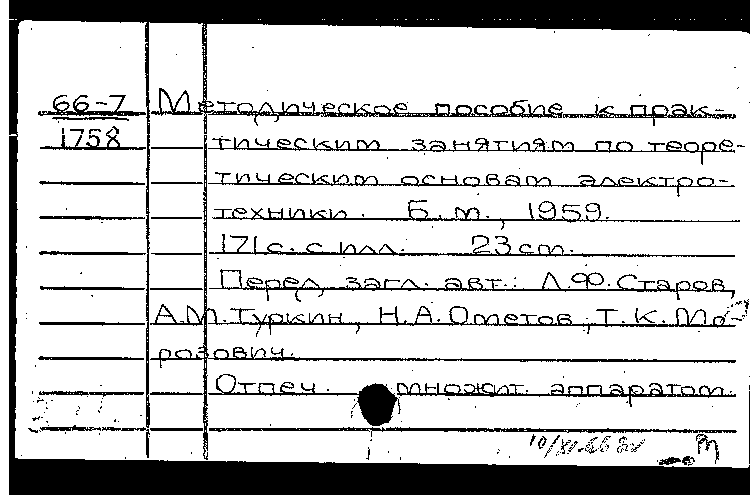 66-7 Методическое пособие к прак-
1758 тическим занятиям по теоре-
тическим основам электро-
техники. Б.м., 1959.
171 с. с илл. 23 см.
Перед загл. авт.: Л.Ф. Старов,
А.М. Туркин, Н.А. Ометов, Т.К. Мо-
розович.
Отпеч. множит. аппаратом.